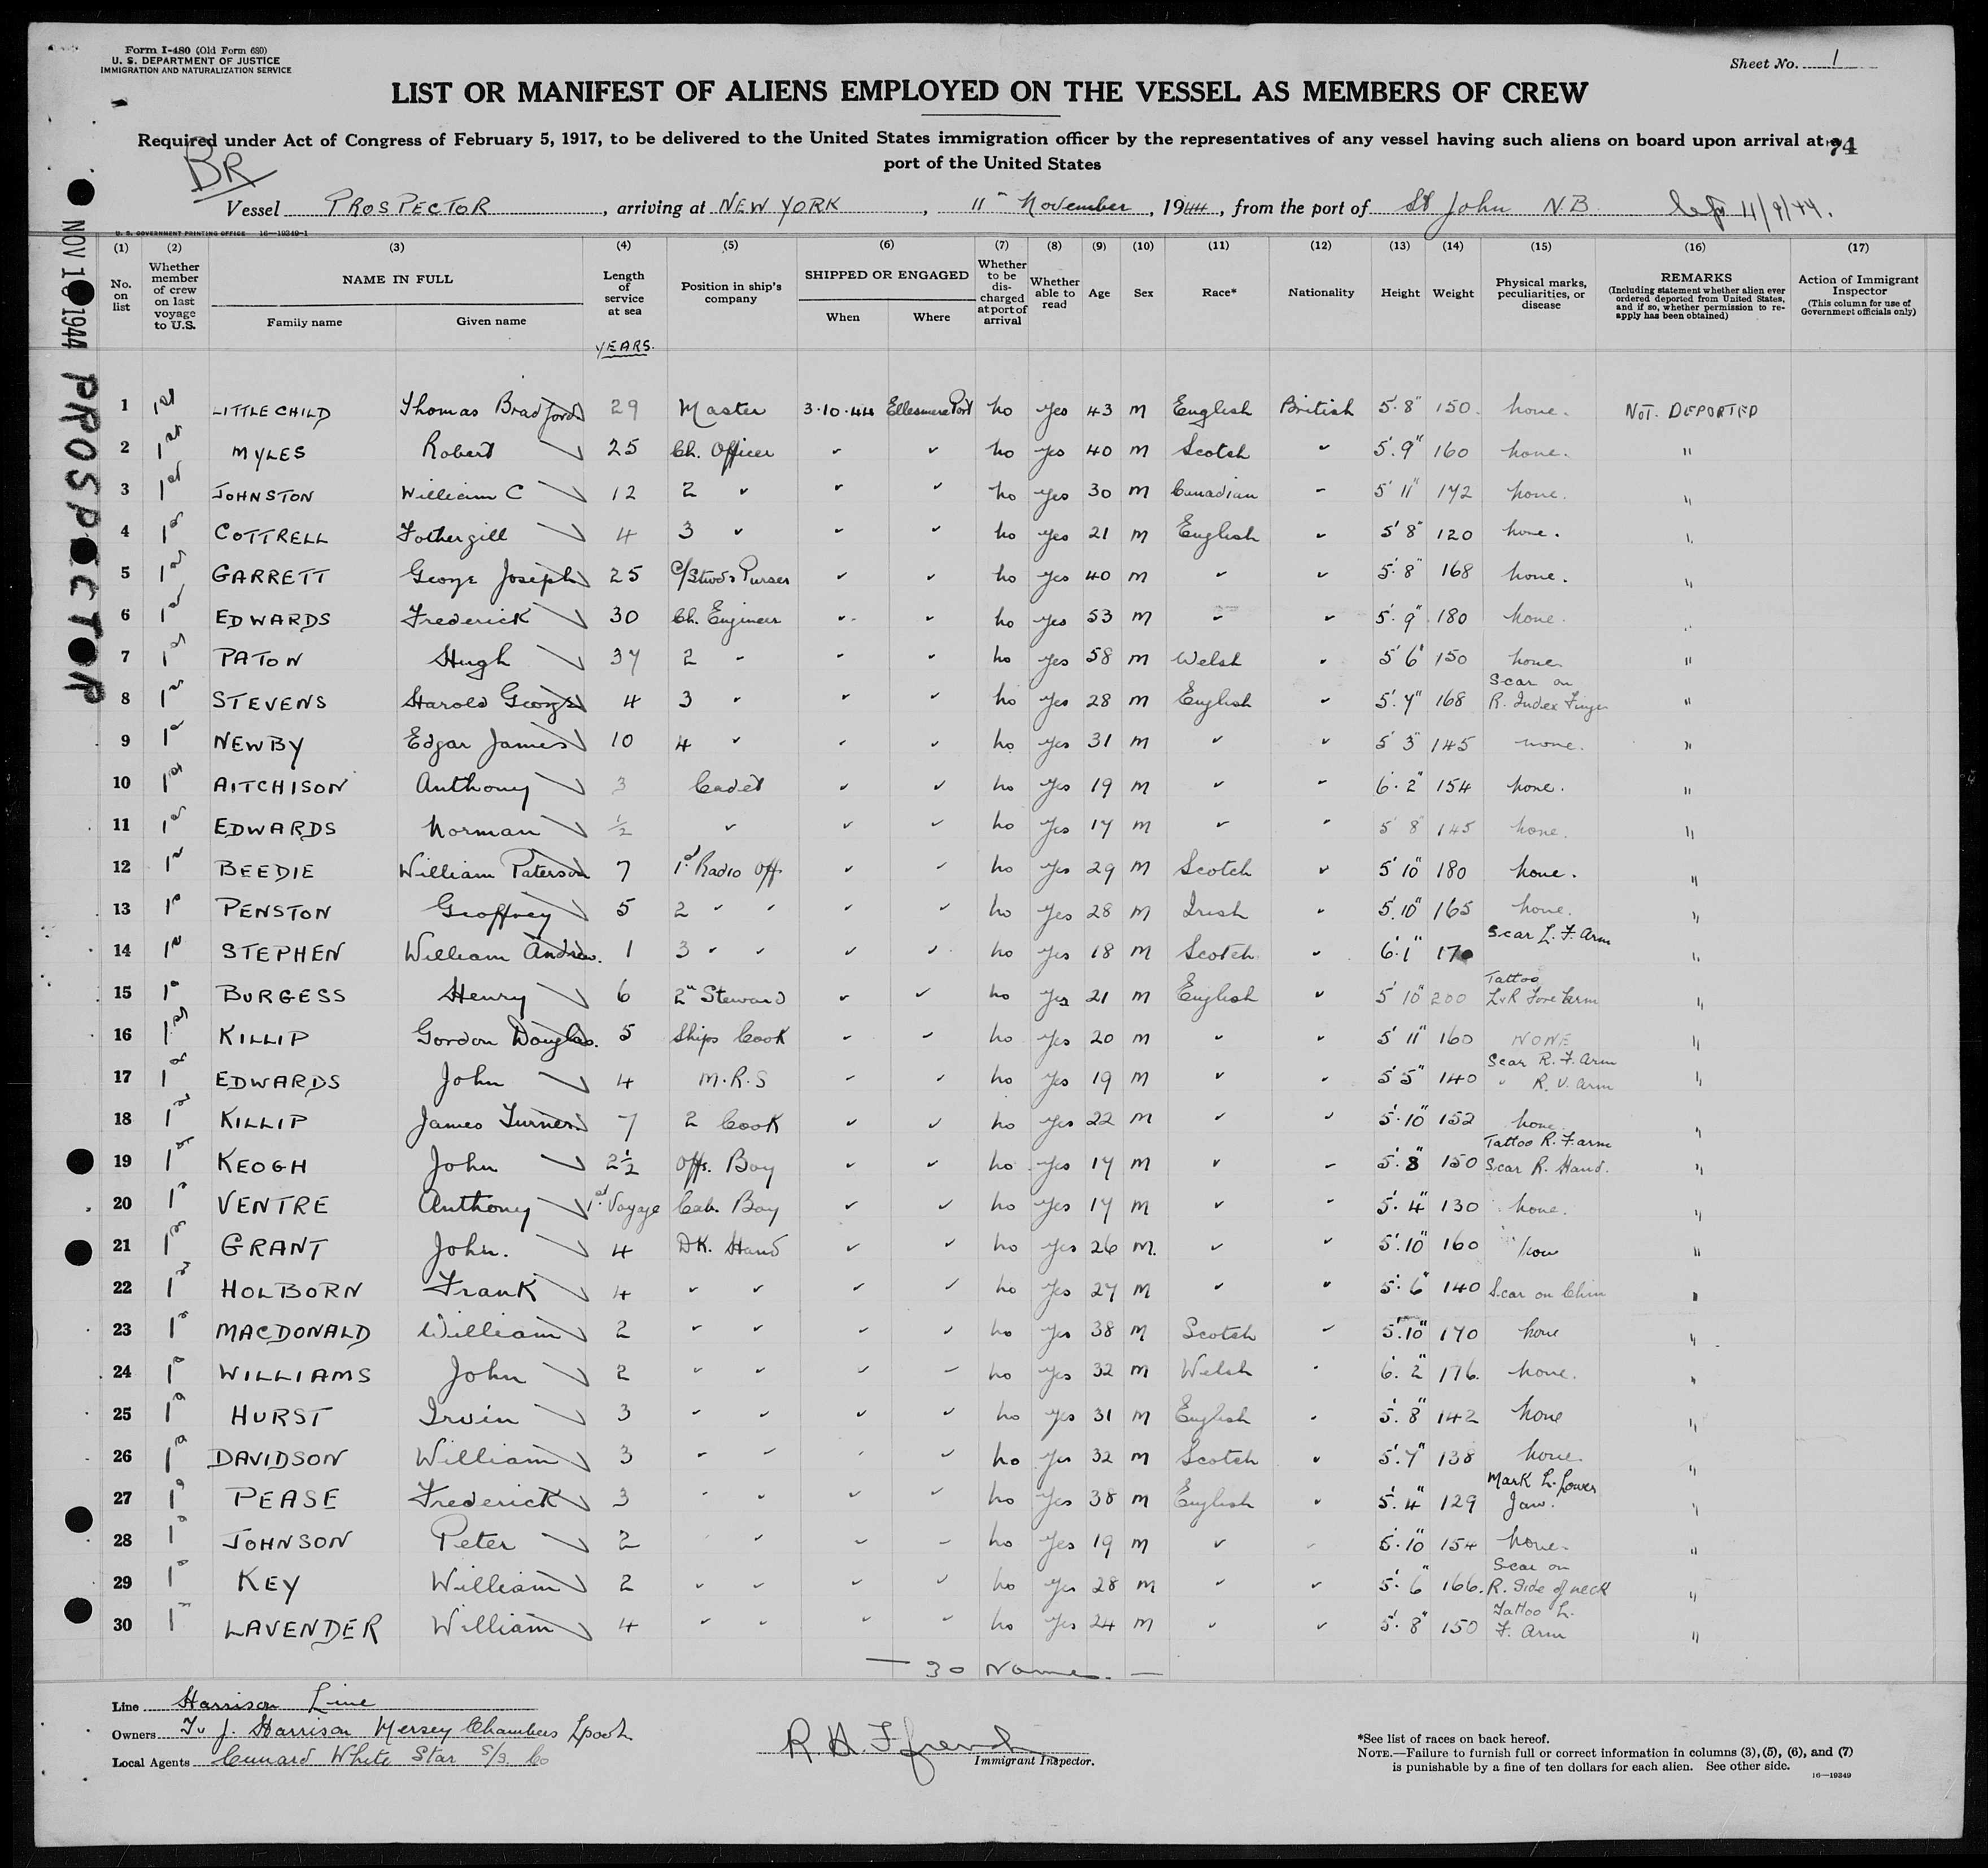 Form I-480 (Old Form 680)
U. S. DEPARTMENT OF JUSTICE
IMMIGRATION AND NATURALIZATION SERVICE
Sheet No. 1
LIST OR MANIFEST OF ALIENS EMPLOYED ON THE VESSEL AS MEMBERS OF CREW
Required under Act of Congress of February 5, 1917, to be delivered to the United States immigration officer by the representatives of any vessel having such aliens on board upon arrival at a
port of the United States
74
BR
Vessel PROSPECTOR, arriving at NEW YORK, 11" November, 1944, from the port of St John N.B.
U. S. GOVERNMENT PRINTING OFFICE 16—19349-1
NOV 10 1944 PROSPECTOR
(1) (2) (3) (4) (5) (6) (7) (8) (9) (10) (11) (12) (13) (14) (15) (16) (17)
No. on list
Whether member of crew on last voyage to U.S.
NAME IN FULL
Family name Given name
Length of service at sea
YEARS.
Position in ship's company
SHIPPED OR ENGAGED
When Where
Whether to be discharged at port of arrival
Whether able to read
Age
Sex
Race*
Nationality
Height
Weight
Physical marks, peculiarities, or disease
REMARKS
(Including statement whether alien ever ordered deported from United States, and if so, whether permission to reapply has been obtained)
Action of Immigrant Inspector
(This column for use of Government officials only)
1 1st LITTLECHILD Thomas Bradford 29 Master 3·10·44 Ellesmere Port no yes 43 M English British 5' 8" 150 none. NOT. DEPORTED
2 1st MYLES Robert 25 Ch. Officer " " no yes 40 M Scotch " 5' 9" 160 none. "
3 1st JOHNSTON William C 12 2 " " " no yes 30 M Canadian " 5' 11" 172 none. "
4 1st COTTRELL Fothergill 4 3 " " " no yes 21 M English " 5' 8" 120 none. "
5 1st GARRETT George Joseph 25 C/Stwd & Purser " " no yes 40 M " " 5' 8" 168 none. "
6 1st EDWARDS Frederick 30 Ch. Engineer " " no yes 53 M " " 5' 9" 180 none. "
7 1st PATON Hugh 37 2 " " " no yes 58 M Welsh " 5' 6" 150 none. "
8 1st STEVENS Harold George 4 3 " " " no yes 28 M English " 5' 7" 168 Scar on R. Index Finger "
9 1st NEWBY Edgar James 10 4 " " " no yes 31 M " " 5' 3" 145 none. "
10 1st AITCHISON Anthony 3 Cadet " " no yes 19 M " " 6' 2" 154 none. "
11 1st EDWARDS Norman ½ " " " no yes 17 M " " 5' 8" 145 none. "
12 1st BEEDIE William Paterson 7 1st Radio Off. " " no yes 29 M Scotch " 5' 10" 180 none. "
13 1st PENSTON Geoffrey 5 2 " " " " no yes 28 M Irish " 5' 10" 165 none. "
14 1st STEPHEN William Andrew. 1 3 " " " " no yes 18 M Scotch " 6' 1" 170 Scar L. F. Arm "
15 1st BURGESS Henry 6 2" Steward " " no yes 21 M English " 5' 10" 200 Tattoo L&R Fore Arm "
16 1st KILLIP Gordon Douglas. 5 Ships Cook " " no yes 20 M " " 5' 11" 160 NONE "
17 1st EDWARDS John 4 M.R.S " " no yes 19 M " " 5' 5" 140 Scar R. F. Arm " R. U. Arm "
18 1st KILLIP James Turner 7 2 Cook " " no yes 22 M " " 5' 10" 152 none "
19 1st KEOGH John 2½ Offs. Boy " " no yes 17 M " " 5' 8" 150 Tattoo R. F. arm Scar R. Hand. "
20 1st VENTRE Anthony 1st Voyage Cab. Boy " " no yes 17 M " " 5' 4" 130 none. "
21 1st GRANT John. 4 DK. Hand " " no yes 26 M. " " 5' 10" 160 none "
22 1st HOLBORN Frank 4 " " " " no yes 27 M " " 5' 6" 140 Scar on Chin "
23 1st MACDONALD William 2 " " " " no yes 38 M Scotch " 5' 10" 170 none "
24 1st WILLIAMS John 2 " " " " no yes 32 M Welsh " 6' 2" 176 none. "
25 1st HURST Irvin 3 " " " " no yes 31 M English " 5' 8" 142 none "
26 1st DAVIDSON William 3 " " " " no yes 32 M Scotch " 5' 7" 138 none. "
27 1st PEASE Frederick 3 " " " " no yes 38 M English " 5' 4" 129 Mark L. Lower Jaw. "
28 1st JOHNSON Peter 2 " " " no yes 19 M " " 5' 10" 154 none. "
29 1st KEY William 2 " " " " no yes 28 M " " 5' 6" 166. Scar on R. Side of neck "
30 1st LAVENDER William 4 " " " " no yes 24 M " " 5' 8" 150 Tattoo L. F. Arm "
— 30 Names. —
Line Harrison Line
Owners T. & J. Harrison Mersey Chambers Lpool
Local Agents Cunard White Star S/S. Co
R. H. Ffrench
Immigrant Inspector.
*See list of races on back hereof.
NOTE.—Failure to furnish full or correct information in columns (3), (5), (6), and (7)
is punishable by a fine of ten dollars for each alien. See other side.
16—19349